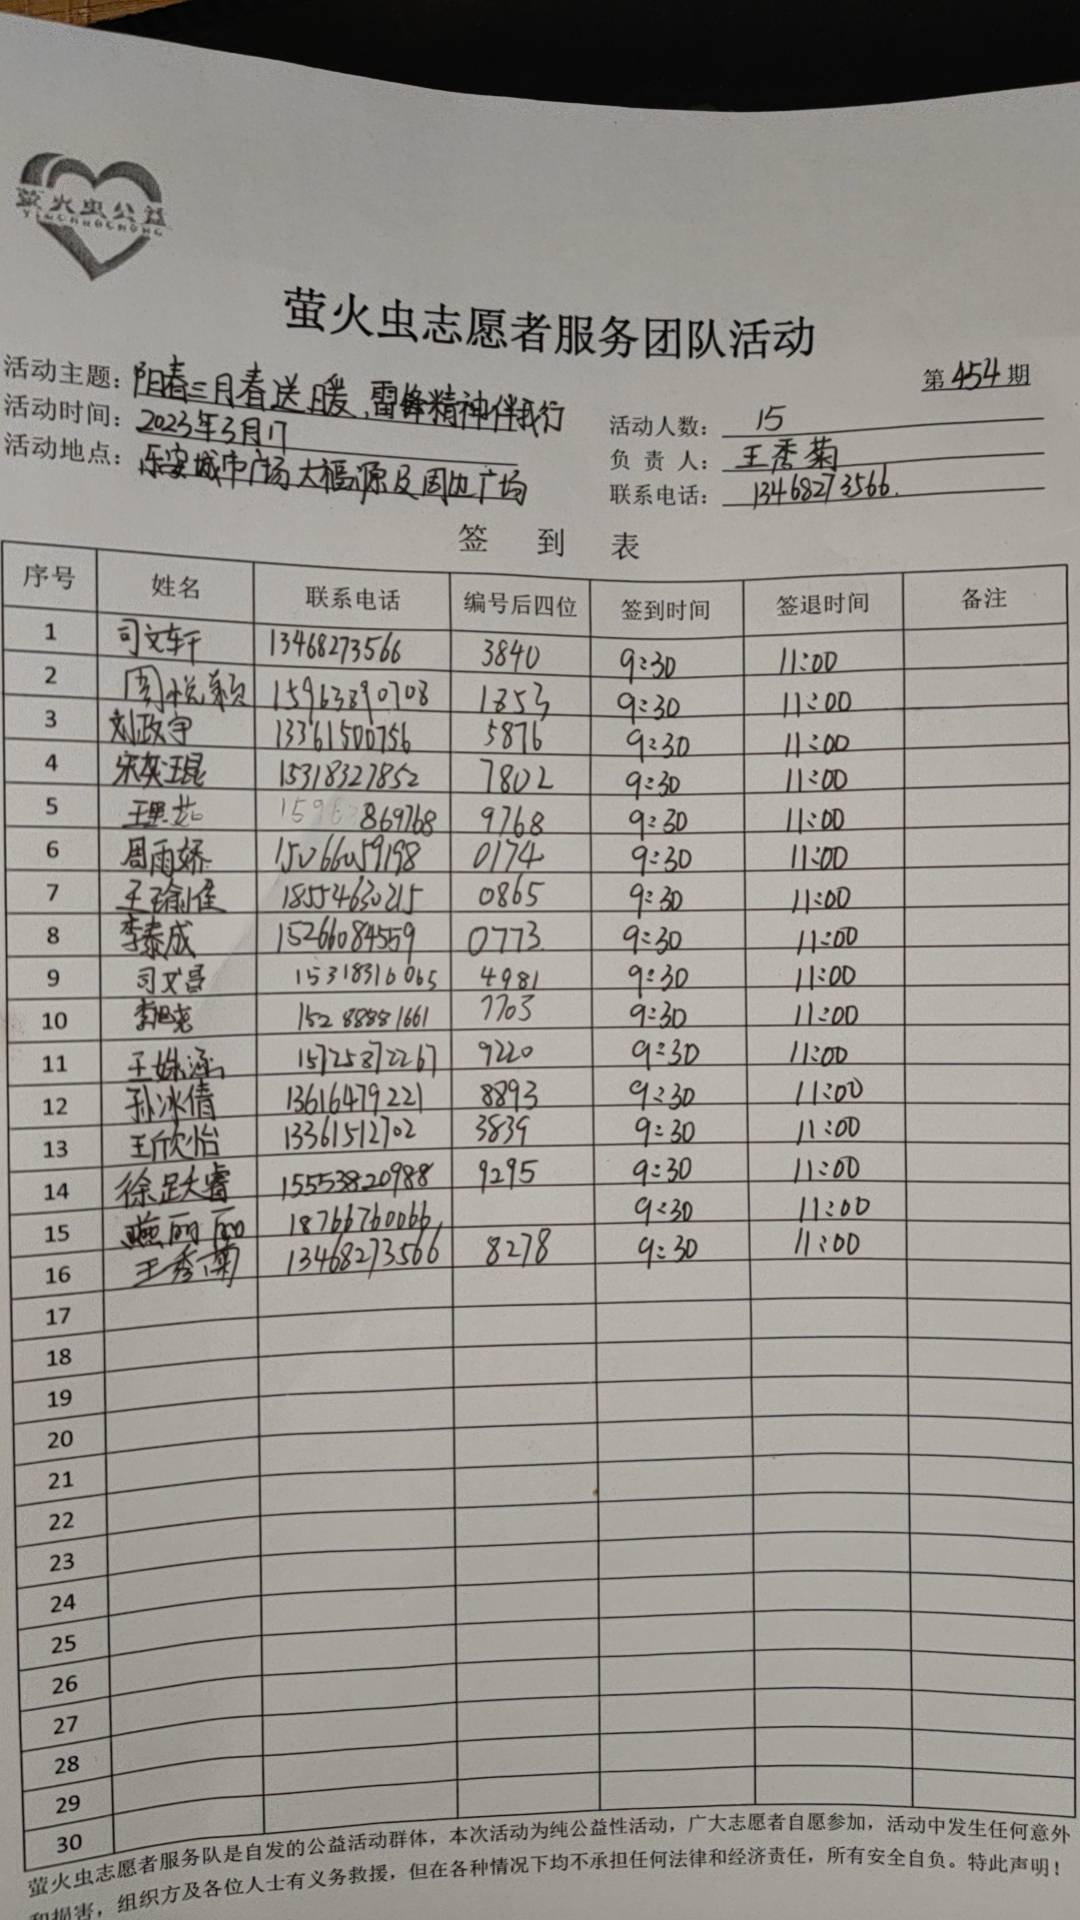 萤火虫公益
YINGHUOCHONG
萤火虫志愿者服务团队活动
第454期
活动主题：阳春三月春送暖，雷锋精神伴我行
活动时间：2023年3月17
活动地点：乐安城市广场大福源及周边广场
活动人数：15
负责人：王秀菊
联系电话：13468273566.
签到表
序号 姓名 联系电话 编号后四位 签到时间 签退时间 备注
1 司文轩 13468273566 3840 9:30 11:00
2 周悦颖 15963890708 1853 9:30 11:00
3 刘政宇 13361500756 5876 9:30 11:00
4 15318327852 7802 9:30 11:00
5 869768 9768 9:30 11:00
6 周雨娇 15266059198 0174 9:30 11:00
7 王瑜佳 18554630215 0865 9:30 11:00
8 李泰成 15266084559 0773 9:30 11:00
9 司文昌 15318316065 4981 9:30 11:00
10 15288881661 7703 9:30 11:00
11 王姝涵 15725872267 9220 9:30 11:00
12 孙冰倩 13616479221 8893 9:30 11:00
13 王欣怡 13361512702 3839 9:30 11:00
14 徐跃睿 15553820988 9295 9:30 11:00
15 燕丽丽 18766760066 9:30 11:00
16 王秀菊 13468273566 8278 9:30 11:00
17
18
19
20
21
22
23
24
25
26
27
28
29
30
萤火虫志愿者服务队是自发的公益活动群体，本次活动为纯公益性活动，广大志愿者自愿参加，活动中发生任何意外
和损害，组织方及各位人士有义务救援，但在各种情况下均不承担任何法律和经济责任，所有安全自负。特此声明！